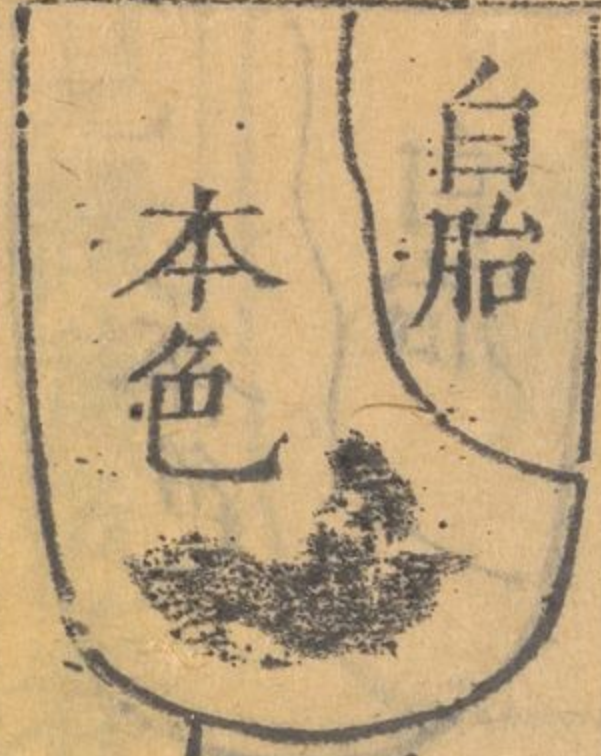 白胎
本色